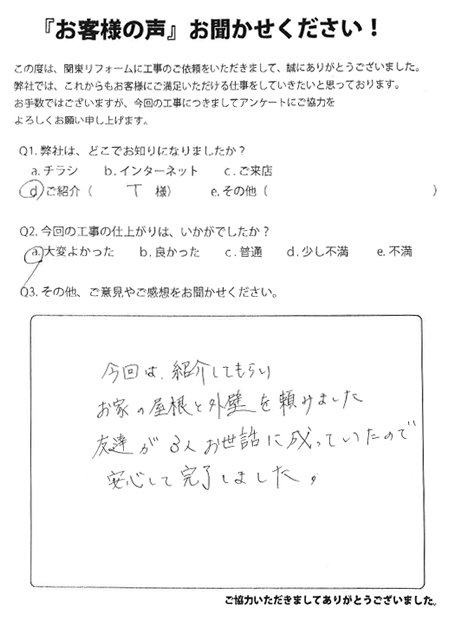 『お客様の声』お聞かせください！
この度は、関東リフォームに工事のご依頼をいただきまして、誠にありがとうございました。
弊社では、これからもお客様にご満足いただける仕事をしていきたいと思っております。
お手数ではございますが、今回の工事につきましてアンケートにご協力を
よろしくお願い申し上げます。
Q1. 弊社は、どこでお知りになりましたか？
a. チラシ b. インターネット c. ご来店
d ご紹介（ T 様） e. その他（ ）
Q2. 今回の工事の仕上がりは、いかがでしたか？
a. 大変よかった b. 良かった c. 普通 d. 少し不満 e. 不満
Q3. その他、ご意見やご感想をお聞かせください。
今回は、紹介してもらい
お家の屋根と外壁を頼みました
友達が3人お世話に成っていたので
安心して完了しました。
ご協力いただきましてありがとうございました。